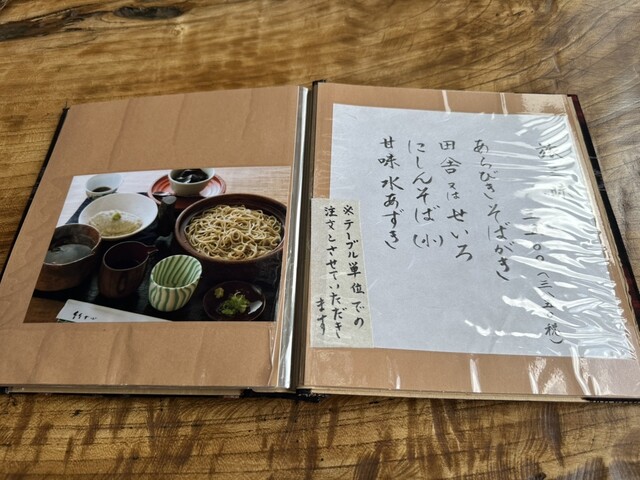 あらびきそばがき
田舎又はせいろ
にしんそば(小)
甘味 水あずき
※テーブル単位での
注文とさせていただき
ます